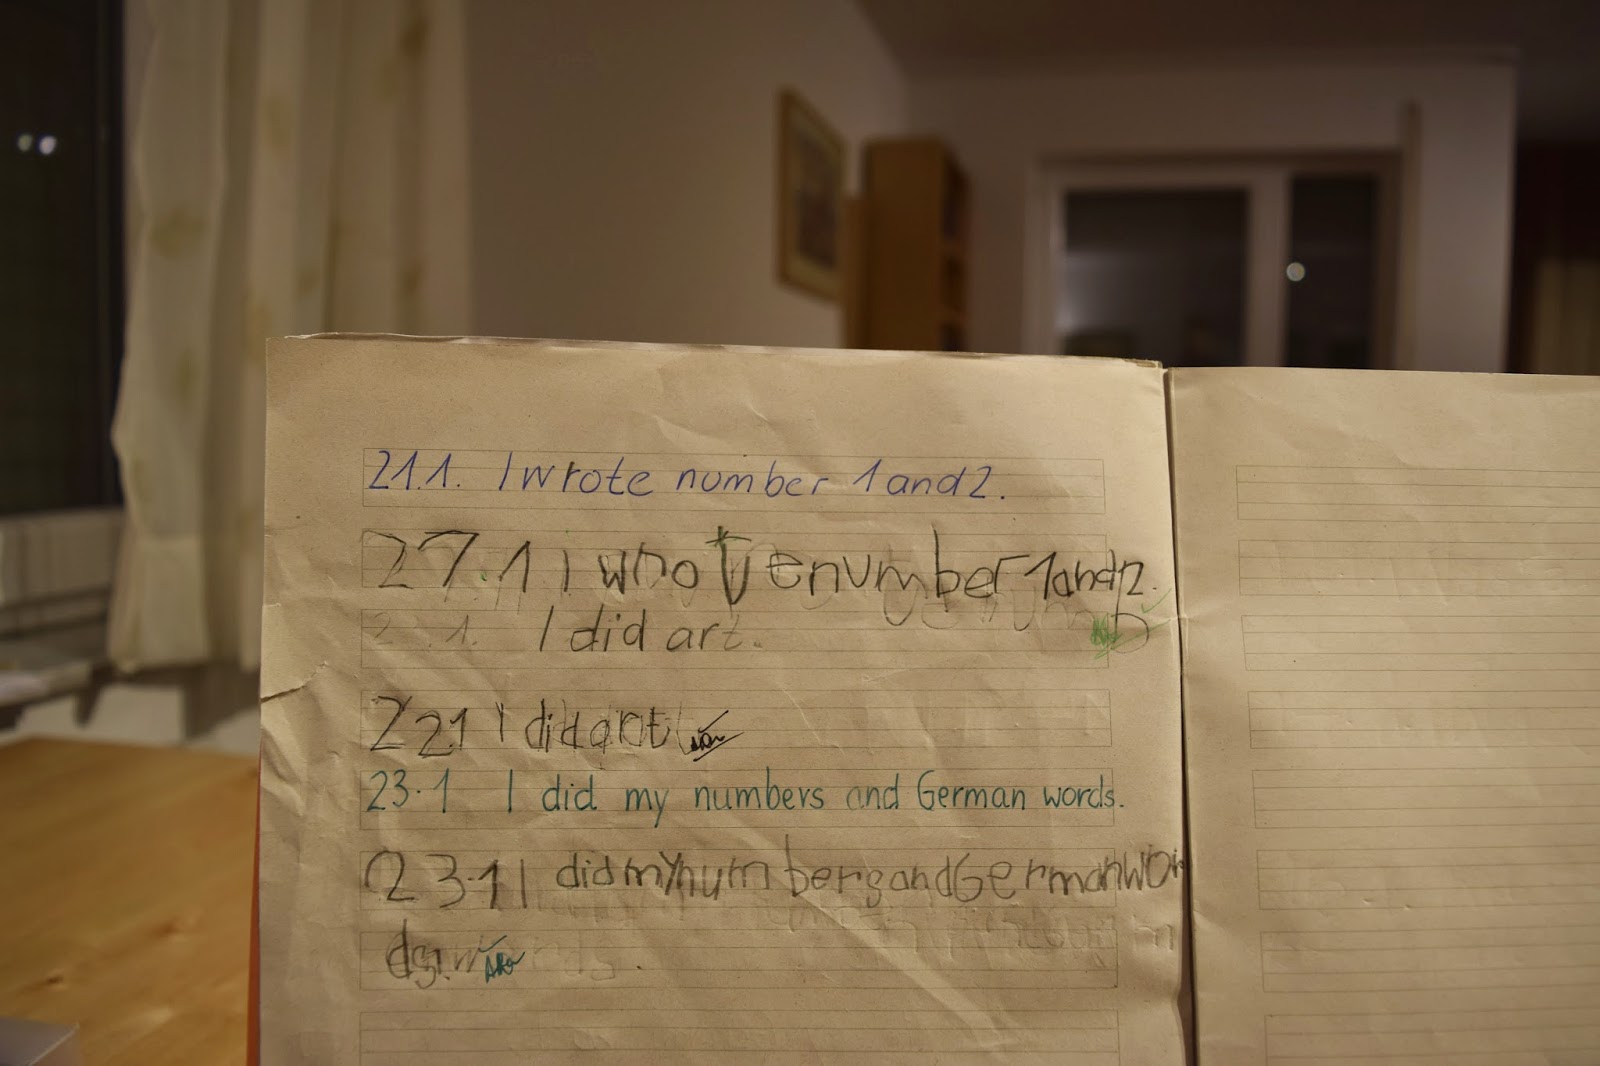 21.1. I wrote number 1 and 2.
27.1 i wrote number 1and2.
2 .1. I did art.
22.1 I did art
23.1 I did my numbers and German words.
23.1 I did my numbers and German wor
ds.